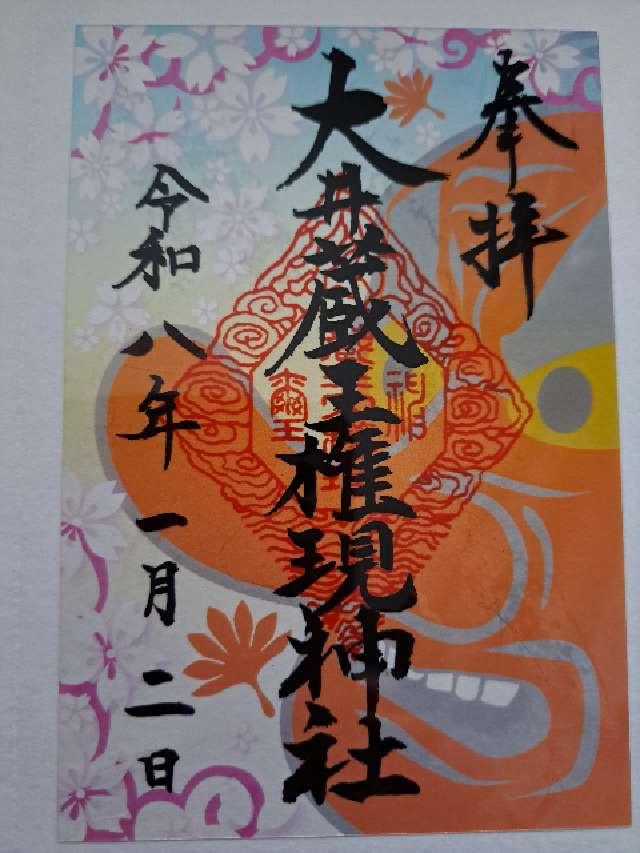 奉拝
大井蔵王権現神社
令和八年一月二日